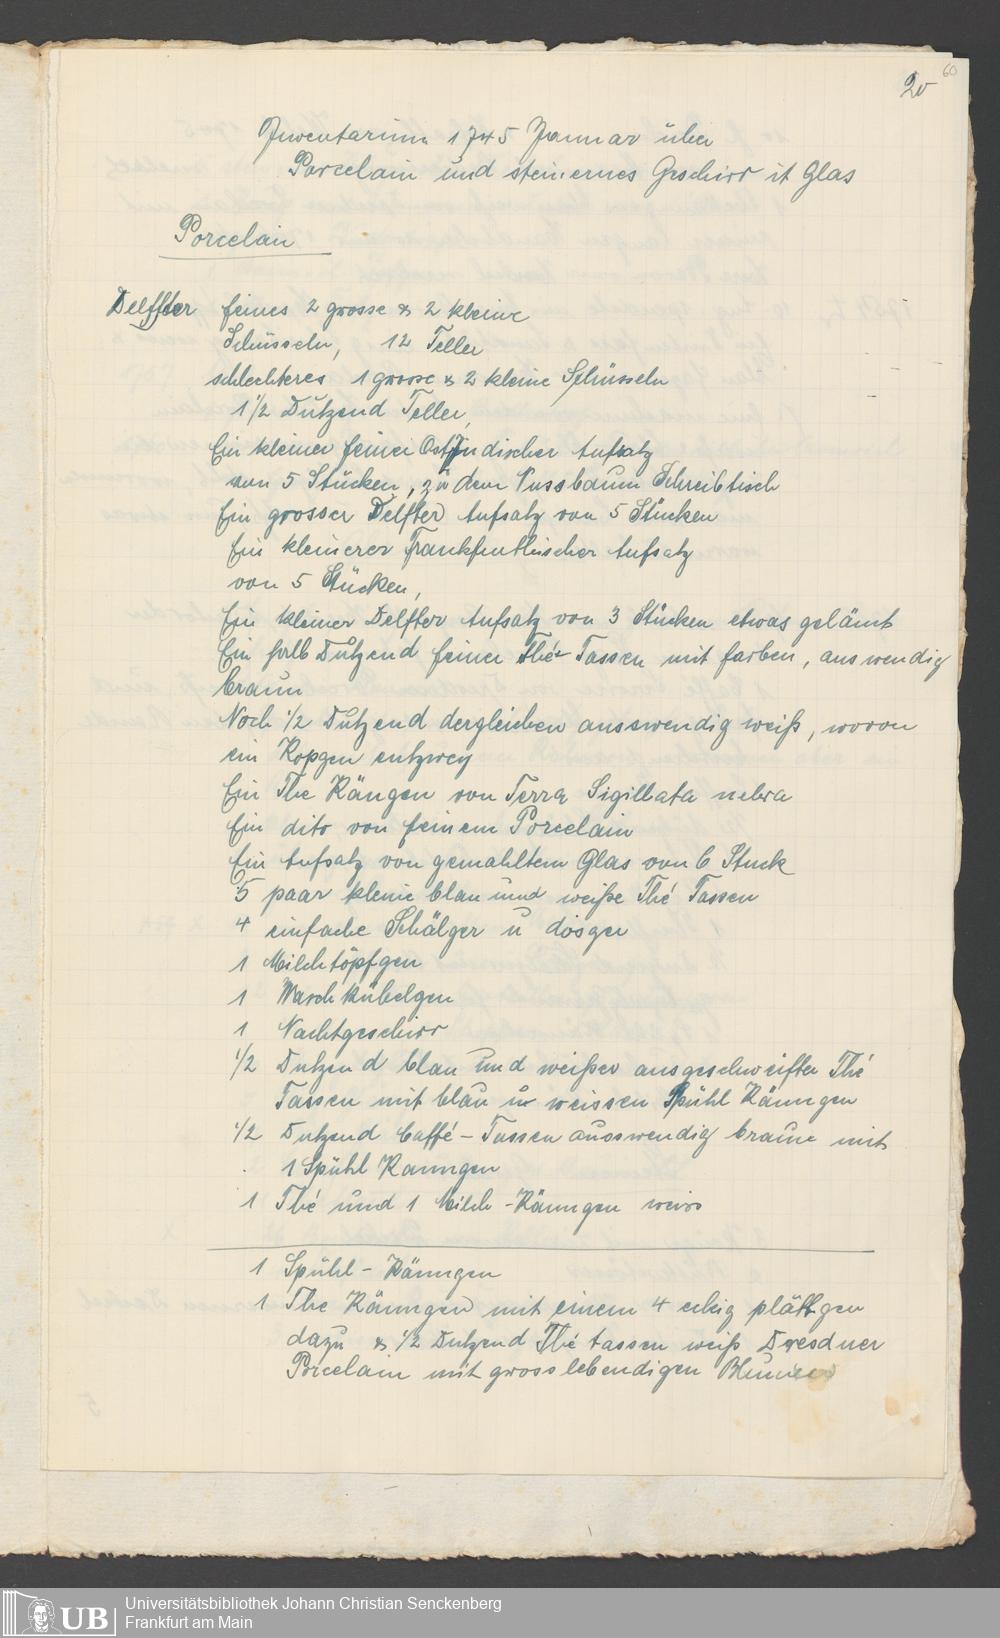 20
60
Inventarium 1745 Januar über
Porcelain und steinernes Geschirr it Glas
Porcelain
Delffter feines 2 grosse & 2 kleine
Schüsseln, 12 Teller
schlechteres 1 grosse & 2 kleine Schüsseln
1 1/2 Dutzend Teller,
Ein kleiner feiner OstIndischer Aufsatz
von 5 Stücken, zu dem Nussbaum Schreibtisch
Ein grosser Delfter Aufsatz von 5 Stücken
Ein kleinerer Frankfurthischer Aufsatz
von 5 Stücken,
Ein kleiner Delfter Aufsatz von 3 Stücken etwas gelämt
Ein halb Dutzend feiner Thé Tassen mit farben, auswendig
braun
Noch 1/2 Dutzend dergleichen ausswendig weiß, wovon
ein Kopgen entzwey
Ein The Kängen von Terra Sigillata
Ein dito von feinem Porcelain
Ein Aufsatz von gemahltem Glas von 6 Stuck
5 paar kleine blau und weiße Thé Tassen
4 einfache Schälger u dösger
1 Milchtöpfgen
1 Waschkübelgen
1 Nachtgeschirr
1/2 Dutzend blau und weißer ausgeschweifter Thé
Tassen mit blau u weissen Spühl Känngen
1/2 Dutzend Caffé-Tassen auswendig braune mit
1 Spühl Kanngen
1 Thé und 1 Milch-Känngen weiss
1 Spühl-Känngen
1 The Känngen mit einem 4 eckig plättgen
dazu & 1/2 Dutzend Thé tassen weiß Dresdner
Porcelain mit gross lebendigen Blumen
UB
Universitätsbibliothek Johann Christian Senckenberg
Frankfurt am Main